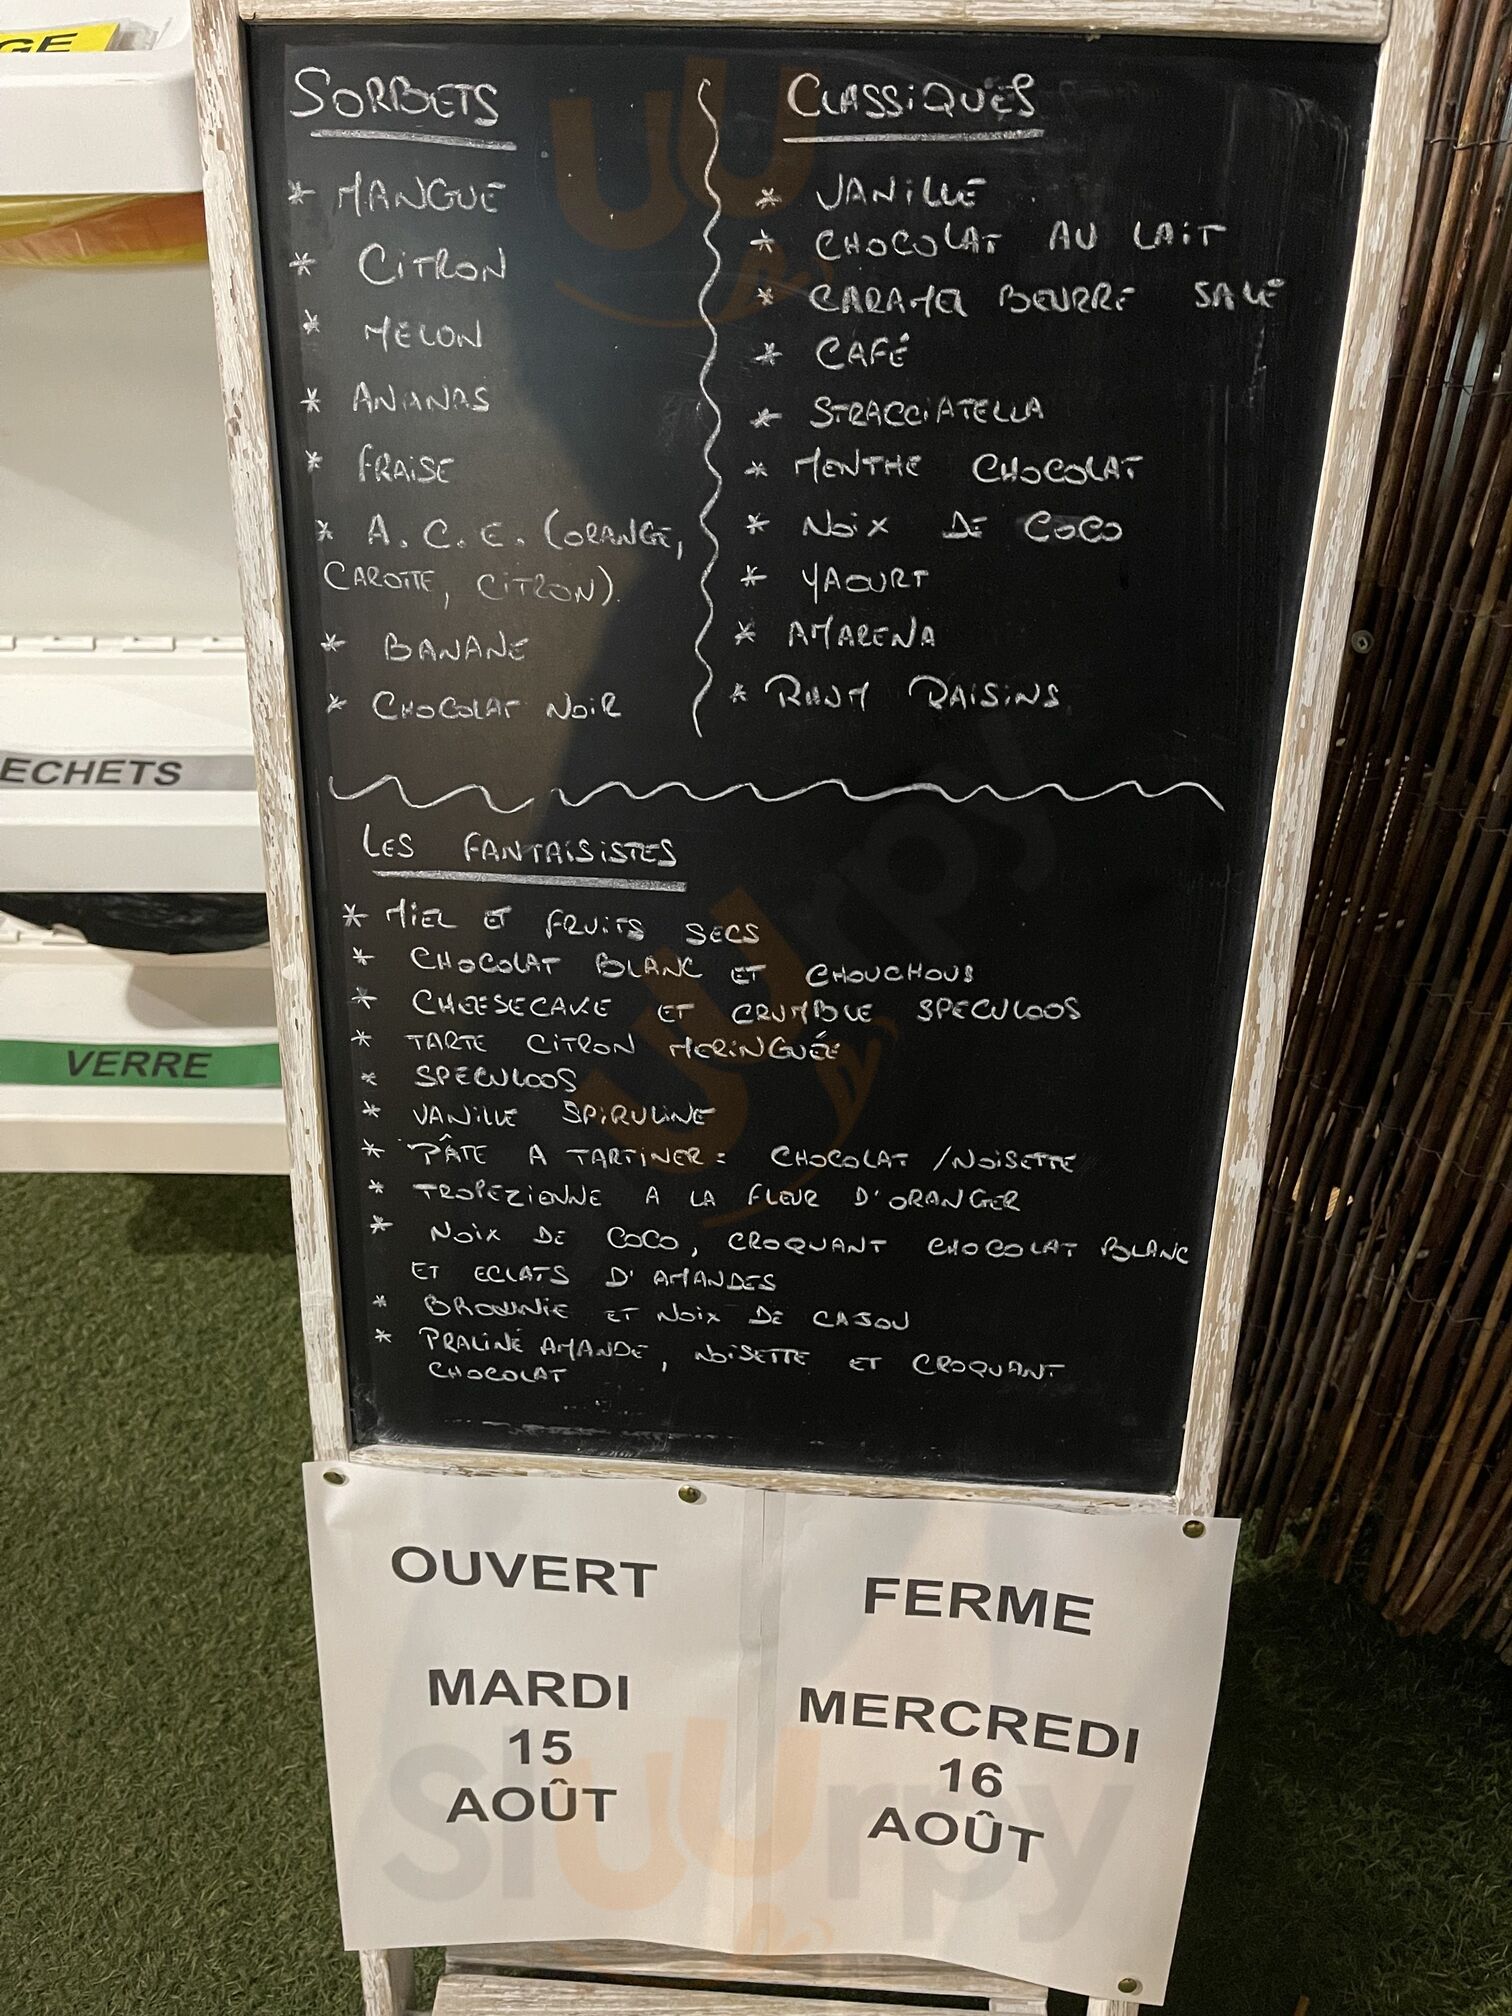 GE
SORBETS
* MANGUE
* CITRON
* MELON
* ANANAS
* FRAISE
* A.C.E. (ORANGE,
CAROTTE, CITRON).
* BANANE
* CHOCOLAT NOIR
CLASSIQUES
* VANILLE
* CHOCOLAT AU LAIT
* CARAMEL BEURRE SALÉ
* CAFÉ
* STRACCIATELLA
* MENTHE CHOCOLAT
* NOIX DE COCO
* YAOURT
* AMARENA
* RHUM RAISINS
LES FANTAISISTES
* MIEL ET FRUITS SECS
* CHOCOLAT BLANC ET CHOUCHOUS
* CHEESECAKE ET CRUMBLE SPECULOOS
* TARTE CITRON MERINGUÉE
* SPECULOOS
* VANILLE SPIRULINE
* PÂTE A TARTINER : CHOCOLAT /NOISETTE
* TROPEZIENNE A LA FLEUR D'ORANGER
* NOIX DE COCO, CROQUANT CHOCOLAT BLANC
ET ECLATS D'AMANDES
* BROWNIE ET NOIX DE CAJOU
* PRALINÉ AMANDE, NOISETTE ET CROQUANT
CHOCOLAT
ECHETS
VERRE
OUVERT
MARDI
15
AOÛT
FERME
MERCREDI
16
AOÛT
Sluurpy